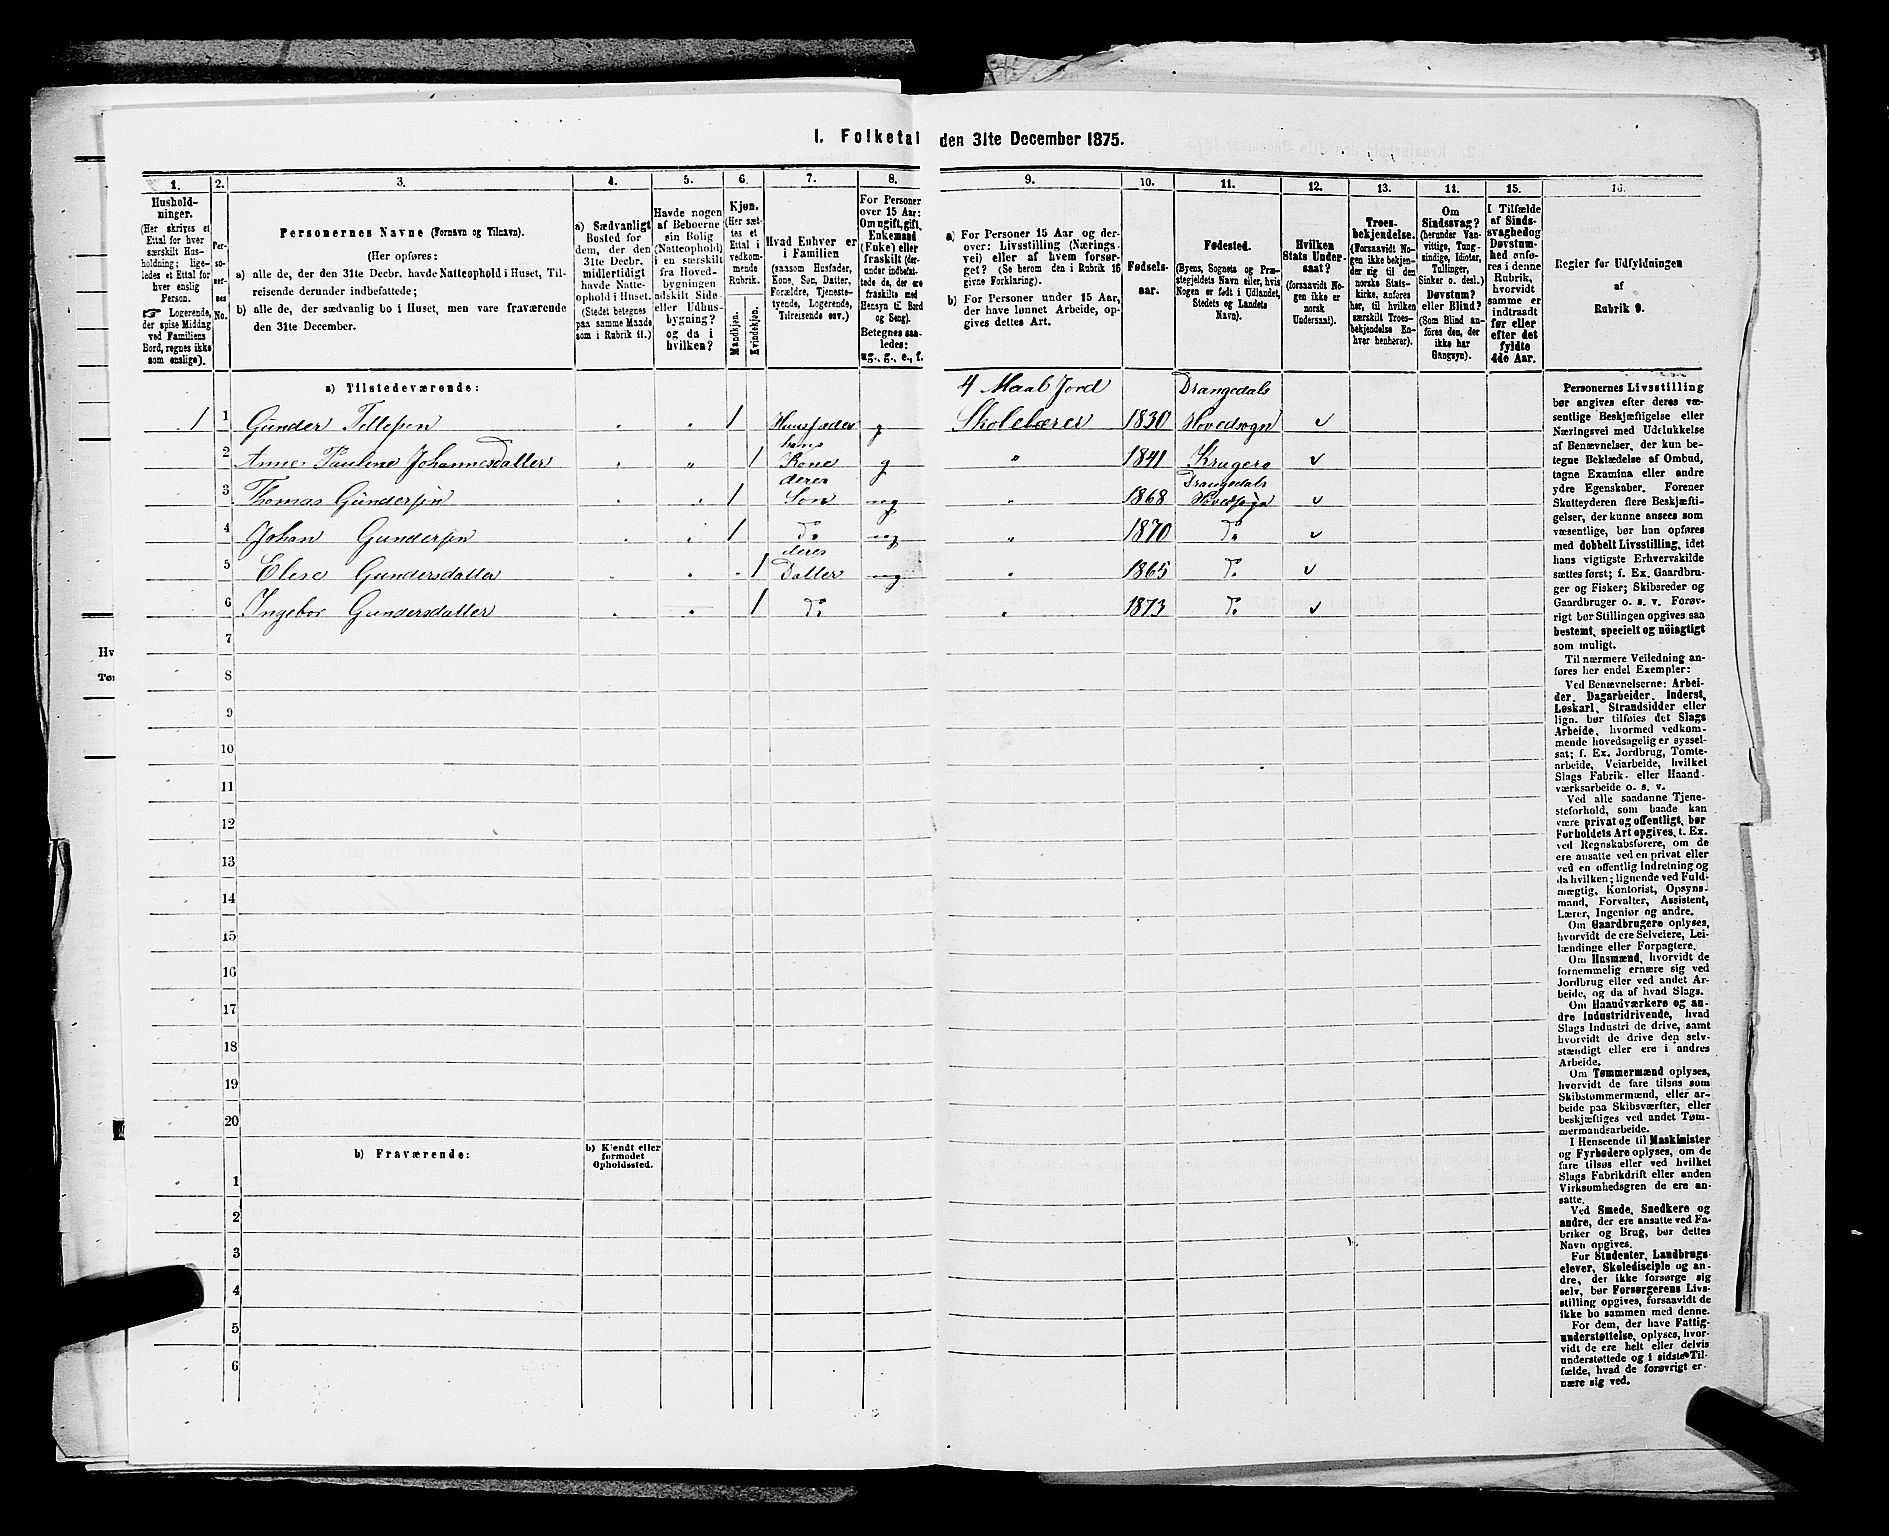 I. Folketal den 31te December 1875.
1. 2. 3. 4. 5. 6. 7. 8. 9. 10. 11. 12. 13. 14. 15. 16.
Hushold-
ninger.
(Her skrives et
Ettal for hver
særskilt Hus-
holdning; lige-
ledes et Ettal for
hver enslig
Person.
☞ Logerende,
der spise Middag
ved Familiens
Bord, regnes ikke
som enslige).
Personernes No.
Personernes Navne (Fornavn og Tilnavn).
(Her opføres:
a) alle de, der den 31te Decbr. havde Natteophold i Huset, Til-
reisende derunder indbefattede;
b) alle de, der sædvanlig bo i Huset, men vare fraværende
den 31te December.
a) Sædvanligt
Bosted for
dem, der den
31te Decbr.
midlertidigt
havde Natte-
ophold i Huset.
(Stedet betegnes
paa samme Maade
som i Rubrik 11.)
Havde nogen
af Beboerne
sin Bolig
(Natteophold)
i en særskilt
fra Hoved-
bygningen
adskilt Side-
eller Udhus-
bygning?
og da i
hvilken?
Kjøn.
(Her sæt-
tes et
Ettal i
vedkom-
mende
Rubrik.
Mandkjøn.
Kvindekjøn.
Hvad Enhver er
i Familien
(saasom Husfader,
Kone, Søn, Datter,
Forældre, Tjeneste-
tyende, Logerende,
Tilreisende osv.)
For Personer
over 15 Aar:
Om ugift, gift,
Enkemand
(Enke) eller
fraskilt (der-
under indbefat-
tede de, der ere
fraskilte med
Hensyn til Bord
og Seng).
Betegnes saa-
ledes:
ug., g., e., f.
a) For Personer 15 Aar og der-
over: Livsstilling (Nærings-
vei) eller af hvem forsør-
get? (Se herom den i Rubrik 16
givne Forklaring).
b) For Personer under 15 Aar,
der have lønnet Arbeide, op-
gives dettes Art.
Fødsels-
aar.
Fødested.
(Byens, Sognets og Præ-
stegjeldets Navn eller, hvis
Nogen er født i Udlandet,
Stedets og Landets
Navn).
Hvilken
Stats Under-
saat?
(forsaavidt No-
gen ikke er
norsk
Undersaat).
Troes-
bekjendelse.
(Forsaavidt No-
gen ikke bekjen-
der sig til den
norske Stats-
kirke, anføres
her, til hvilken
særskilt Troes-
bekjendelse En-
hver henhører).
Om
Sindssvag?
(herunder Van-
vittige, Tung-
sindige, Idioter,
Tullinger,
Sinker o. desl.)
Døvstum?
eller Blind?
(Som Blind an-
føres den, der
ikke har
Gangsyn).
I Tilfælde
af Sinds-
svaghed og
Døvstum-
hed anfø-
res i denne
Rubrik,
hvorvidt
samme er
indtraadt
før eller
efter det
fyldte
4de Aar.
Regler for Udfyldningen
af
Rubrik 9.
a) Tilstedeværende:
4 Maal Jord Drangedals
1 1 Gunder Tellefsen 1 Huusfader g Skolelærer 1830 Hovedsogn
2 Anne Pauline Johannesdatter 1 hans Kone g 1841 Kragerø
3 Thomas Gundersøn 1 deres Søn ug 1868 Drangedals Hovedsogn
4 Johan Gundersøn 1 Do ug 1870 Do
5 Elise Gundersdatter 1 deres Datter ug 1865 Do
6 Ingebor Gundersdatter 1 Do 1873 Do
7
8
9
10
11
12
13
14
15
16
17
18
19
20
b) Fraværende:
b) Kjendt eller
formodet
Opholdssted.
1
2
3
4
5
6
Personernes Livsstilling
bør angives efter deres væ-
sentlige Beskjæftigelse eller
Næringsvei med Udelukkelse
af Benævnelser, der kun be-
tegne Beklædelse af Ombud,
tagne Examina eller andre
ydre Egenskaber. Forener
Skatteyderen flere Beskjæfti-
gelser, der kunne ansees som
væsentlige, bør han opføres
med dobbelt Livsstilling, idet
hans vigtigste Erhvervskilde
sættes først; f. Ex. Gaardbru-
ger og Fisker; Skibsreder og
Gaardbruger o. s. v. Forøv-
rigt bør Stillingen opgives saa
bestemt, specielt og nøiagtigt
som muligt.
Til nærmere Veiledning an-
føres her endel Exempler:
Ved Benævnelserne: Arbei-
der, Dagarbeider, Inderst,
Løskarl, Strandsidder eller
lign. bør tilføies det Slags
Arbeide, hvormed vedkom-
mende hovedsagelig er syssel-
sat; f. Ex. Jordbrug, Tomte-
arbeide, Veiarbeide, hvilket
Slags Fabrik- eller Haand-
værksarbeide o. s. v.
Ved alle saadanne Tjene-
steforhold, som baade kan
være privat og offentligt, bør
Forholdets Art opgives, t. Ex.
ved Regnskabsførere, om de
ere ansatte ved en privat eller
ved en offentlig Indretning og
da hvilken; lignende ved Fuld-
mægtig, Kontorist, Opsyns-
mand, Forvalter, Assistent,
Lærer, Ingeniør og andre.
Om Gaardbrugere oplyses,
hvorvidt de ere Selveiere, Lei-
lændinge eller Forpagtere.
Om Husmænd, hvorvidt de
fornemmelig ernære sig ved
Jordbrug eller ved andet Ar-
beide, og da af hvad Slags.
Om Haandværkere og an-
dre Industridrivende, hvad
Slags Industri de drive, samt
hvorvidt de drive den selv-
stændigt eller ere i andres
Arbeide.
Om Tømmermænd oplyses,
hvorvidt de fare tilsøs som
Skibstømmermænd, eller ar-
beide paa Skibsværfter, eller
beskjæftiges ved andet Tøm-
mermandsarbeide.
I Henseende til Maskinister
og Fyrbødere oplyses, om de
fare tilsøs eller ved hvilket
Slags Fabrikdrift eller anden
Virksomhedsgren de ere an-
satte.
Ved Smede, Snedkere og
andre, der ere ansatte ved Fa-
briker og Brug, bør dettes
Navn opgives.
For Studenter, Landbrugs-
elever, Skoledisciple og an-
dre, der ikke forsørge sig
selv, bør Forsørgerens Livs-
stilling opgives, forsaavidt de
ikke bo sammen med denne.
For dem, der have Fattig-
understøttelse, oplyses, hvor-
vidt de ere helt eller delvis
understøttede og i sidste Til-
fælde, hvad de forøvrigt er-
nære sig ved.